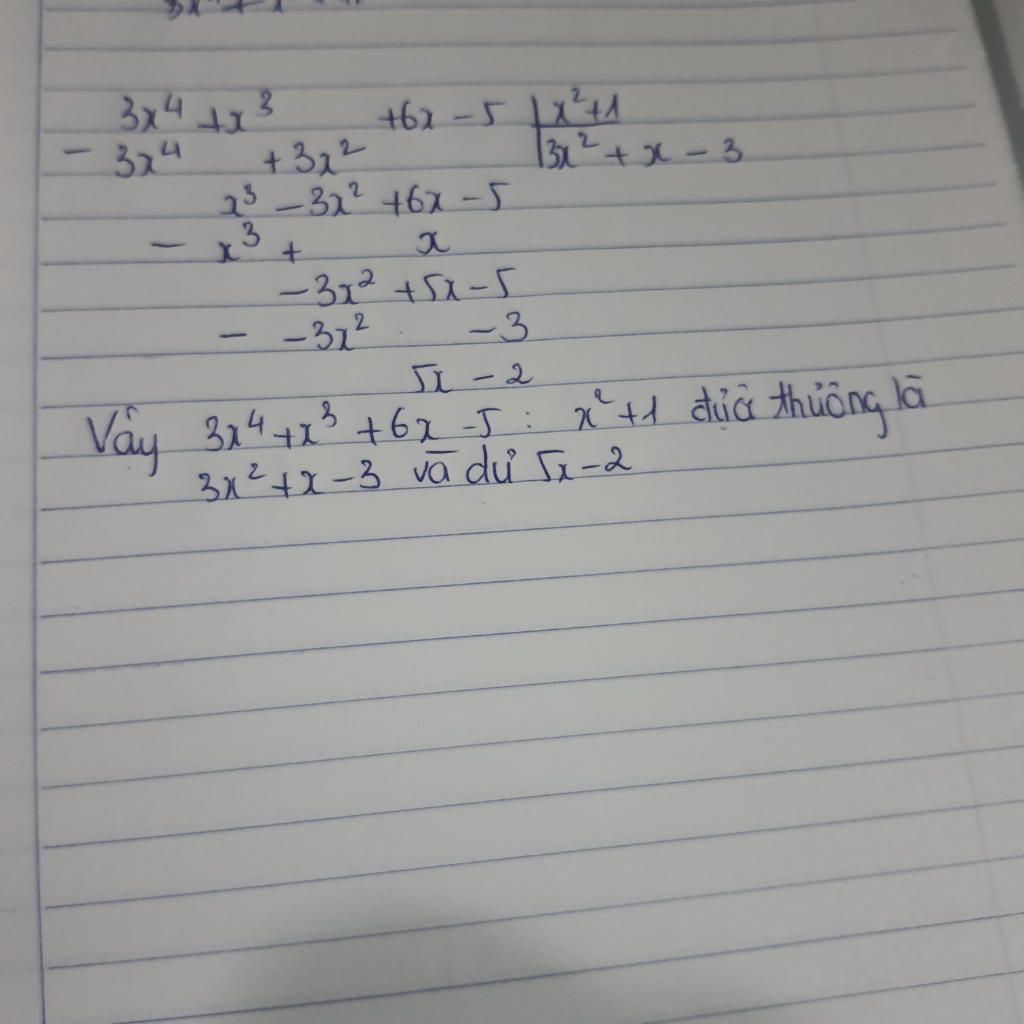 3x⁴ + x³ +6x - 5 | x²+1
- 3x⁴ +3x² | 3x² + x - 3
x³ - 3x² +6x - 5
- x³ + x
- 3x² +5x - 5
- - 3x² - 3
5x - 2
Vậy 3x⁴ + x³ + 6x - 5 : x² + 1 được thương là
3x² + x - 3 và dư 5x - 2